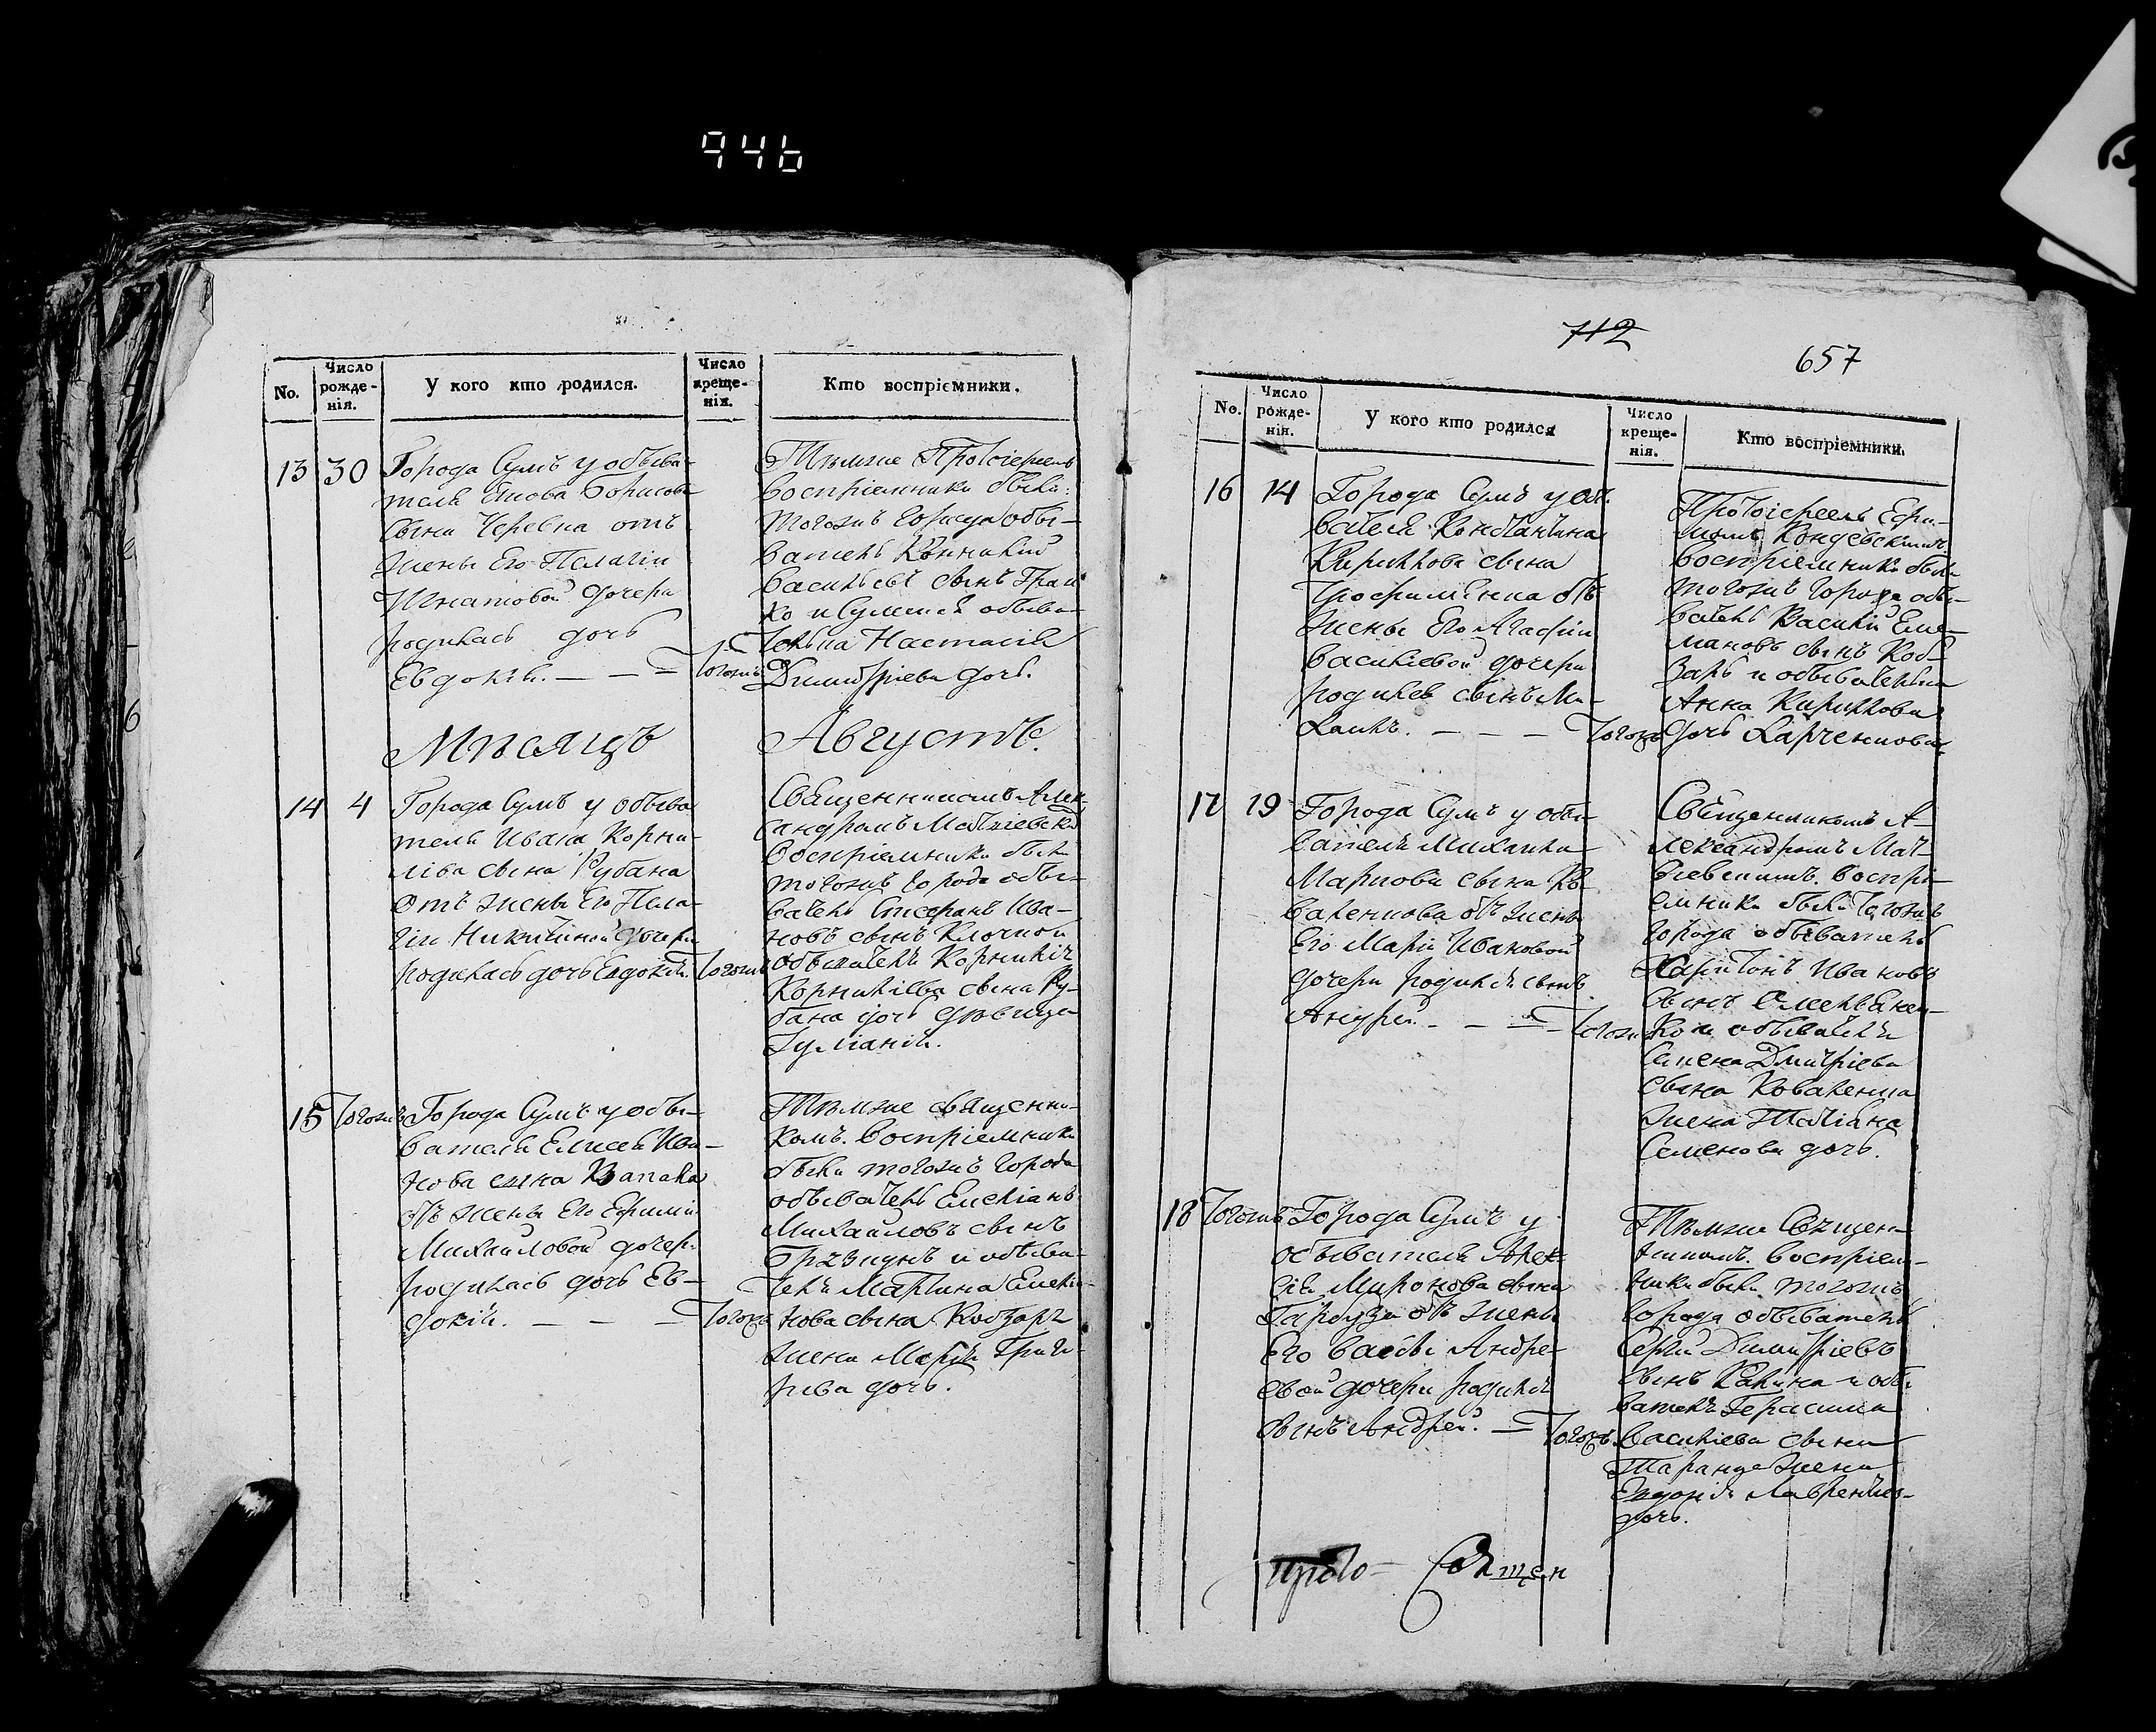 946
No.
Число рожде-нія.
У кого кто родился.
Число креще-нія.
Кто воспріемники.
13 30 Города Сумъ у обыва-
теля Якова Борисова
сына Черевка отъ
жены Его Пелагіи
Игнатовой дочери
родилась дочь
Евдокія. — — — Тогожъ
Тѣмже Протоіереемъ
воспріемники были:
тогожъ города обы-
ватель
Васильевъ сынъ
ко и Сумская обыва-
телька Настасія
Димитріева дочь.
Мѣсяцъ Августъ.
14 4 Города Сумъ у обыва
теля Ивана Корни-
ліева сына Рубана
Отъ жены Его Пела-
гіи Никитиной дочери
родилась дочь Евдокія. Тогожъ
Священникомъ Алек-
сандромъ Матвіевски
воспріемники были
тогожъ города обы-
ватель Стефанъ Ива-
новъ сынъ Клочко и
обывателя Корнилія
Корниліева сына Ру-
бана дочь дѣвица
Іуліанія.
15 Тогожъ Города Сумъ у обы-
вателя Елисея Ива-
нова сына
отъ жены Его Ефиміи
Михайловой дочери
родилась дочь Ев-
докія. — — — Тогожъ
Тѣмже священни-
комъ. Воспріемники
были тогожъ города
обыватель Емеліанъ
Михайловъ сынъ
и обыва-
теля Мартина Емелія-
нова сына Кобзаря
жена Марія Григо-
ріева дочь.
712
657
No.
Число рожде-нія.
У кого кто родился
Число креще-нія.
Кто воспріемники.
16 14 Города Сумъ у обы.
вателя Константина
Кириллова сына
Трофименка отъ
жены Его Агафіи
Василіевой дочери
родился сынъ Ми-
хаилъ. — — — Тогожъ
Протоіереемъ Ефи-
момъ
воспріемники были
тогожъ города обы-
ватель Василій Еме-
мановъ сынъ Коб-
зарь и обывателька
Анна Кириллова
дочь Харченкова.
17 19 Города Сумъ у обы-
вателя Михаила
Маркова сына Ко-
валенкова отъ жены
Его Маріи Ивановой
дочери родился сынъ
Андрей. — — — Тогожъ
Священникомъ А-
лександромъ Мат-
віевскимъ. воспрі-
емники были Тогожъ
города обыватель
Харитонъ Ивановъ
сынъ Омельянен-
ко и обывателя
Семена Дмитріева
сына Коваленка
жена Татіана
Семенова дочь.
18 Тогожъ Города Сумъ у
обывателя Алек-
сія Миронова сына
Гарбуза отъ жены
Его Вассы Андре-
евой дочери родился
сынъ Андрей. — Тогожъ.
Тѣмже Священ-
никомъ. воспріем-
ники были тогожъ
города обыватель
Сергій Димитріевъ
сынъ Калина и обы-
вателя Герасима
Василіева сына
Таранца жена
Евдокія Лаврентіев-
дочь.
Прото- Священ